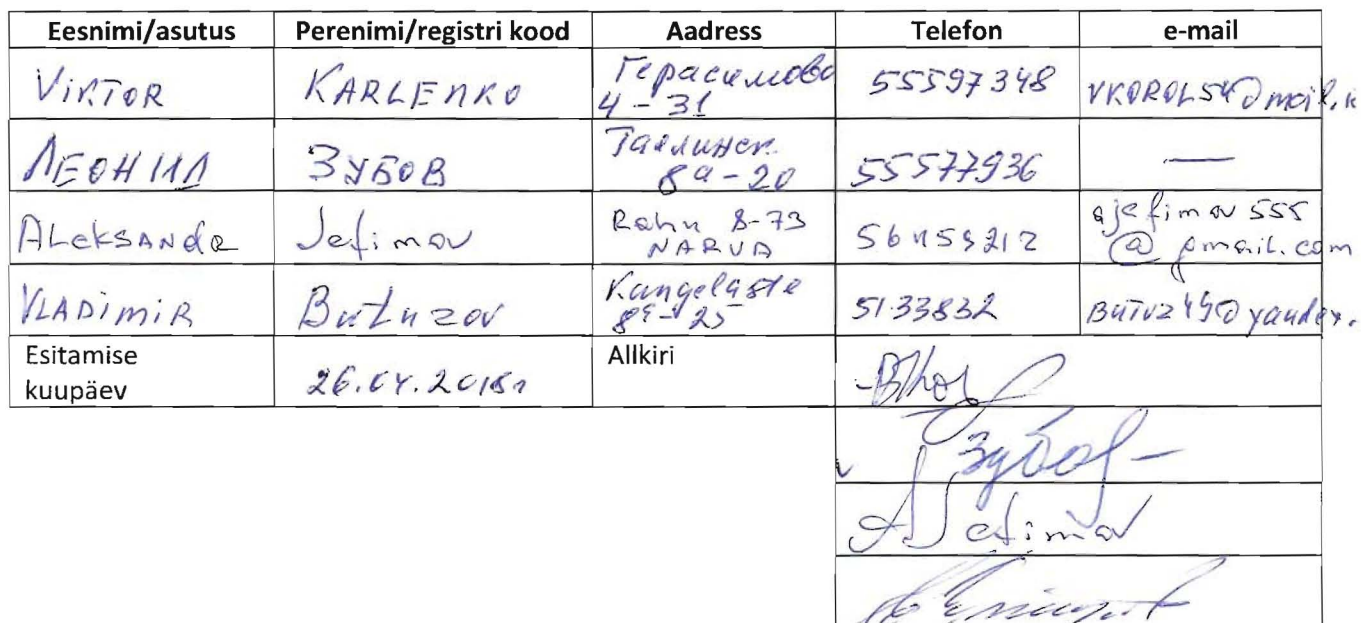 Eesnimi/asutus Perenimi/registri kood Aadress Telefon e-mail
VIKTOR KARLENKO Герасимова 4-31 55597348 VKOROL54@mail.
ЛЕОНИД ЗУБОВ Таллинск. 8а-20 55577936 —
ALEKSANDR Jefimov Rahu 8-73 NARVA ajefimov555 @gmail.com
VLADIMIR Butuzov Kangelaste 8a-25 5133832 BUTUZ49@yandex.
Esitamise kuupäev 26.04.2018 Allkiri
Зубов
AJefimov